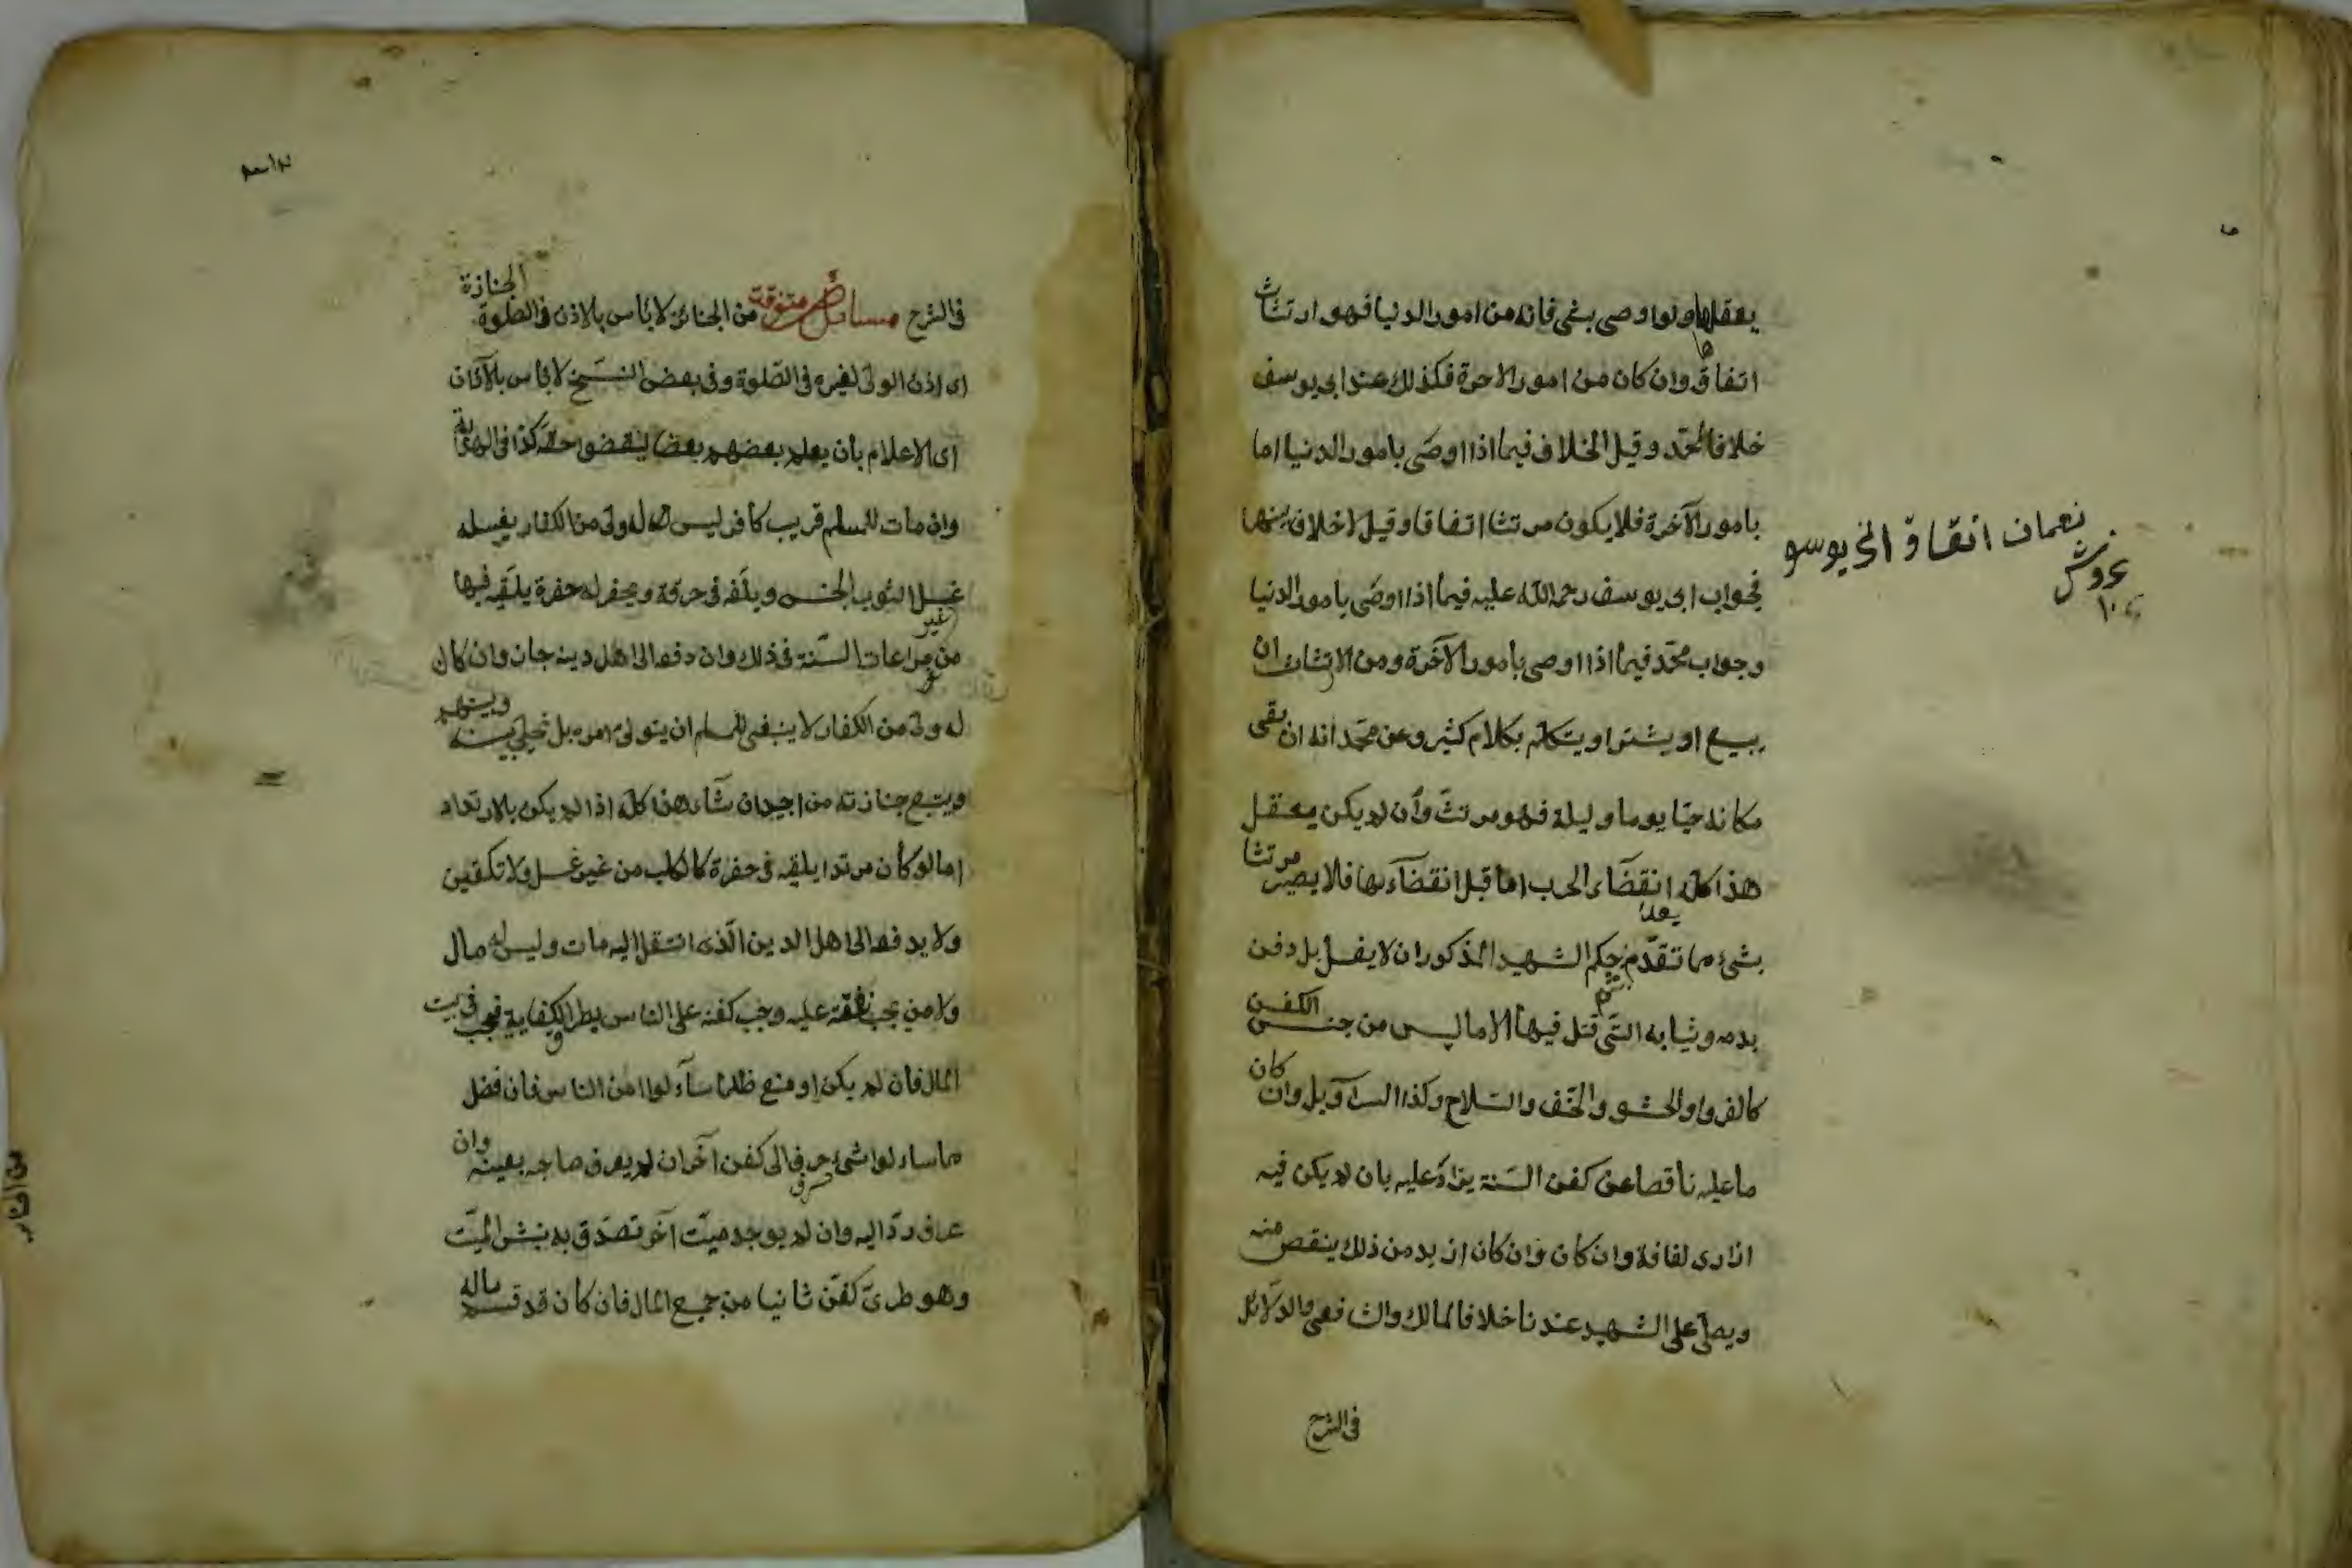 يعقلها ولو اوصى بشئ فانه من امور الدنيا فهو ارتثاث
اتفاقا وان كان من امور الاخرة فكذلك عند ابى يوسف
خلافا لمحمّد وقيل الخلاف فيما اذا اوصى بامور الدنيا اما
بامور الآخرة فلا يكون مرتثا اتفاقا وقيل لا خلاف بينهما
فجواب ابى يوسف رحمة اللّه عليه فيما اذا اوصى بامور الدنيا
وجواب محمّد فيما اذا اوصى بامور الآخرة ومن الارتثاث ان
يبيع او يشترا ويتكلّم بكلام كثير وعن محمّد انه ان بقى
مكانه حيّا يوما وليلة فهو مرتثّ وان لم يكن يعقل
هذا كلّه بعد انقضاء الحرب اما قبل انقضاءها فلا يصير مرتثا
بشئ مما تقدّم ثم حكم الشهيد المذكور ان لا يغسل بل دفن
بدمه وثيابه التى قتل فيها الا ما ليس من جنس الكفن
كالفرو والحشو والخفّ والسّلاح وكذا السراويل وان كان
ما عليه ناقصا عن كفن السّنة يزاد عليه بان لم يكن فيه
ازار او لفافة وان كان وان كان ازيد من ذلك ينقص منه
ويصلّى على الشهيد عندنا خلافا لمالك والشافعى والدلائل
فى الشرح
نعمان
غروش
١٠
فى الشرح مسائل متفرقة من الجنائز لا بأس بالاذن فى الصلوة الجنازة
اى اذن الولى لغيره فى الصّلوة وفى بعض النّسخ لا بأس بالآذان
اى الاعلام بأن يعلم بعضهم بعضا ليقضوا حقّه كذا فى الهداية
وان مات للمسلم قريب كافر ليس له ولى من الكفار يغسله
غسل الثوب النجس ويلفّه فى خرقة ويحفر له حفرة يلقيه فيها
من غير مراعات السّنة فى ذلك وان دفعه الى اهل دينه جاز وان كان
له ولى من الكفار لا ينبغى للمسلم ان يتولى امره بل يخلى بينه وبينهم
ويتبع جنازته من بعيد ان شاء هذا كلّه اذا لم يكن بالارتداد
اما لو كان مرتدا يلقيه فى حفرة كالكلب من غير غسل ولا تكفين
ولا يدفعه الى اهل الدين الّذى انتقل اليه مات وليس له مال
ولا من يجب نفقته عليه وجب كفنه على الناس بطريق الكفاية فيجب فى بيت
المال فان لم يكن او منع ظلما سآءلوا من الناس فان فضل
مما ساءلوا شئ صرف الى كفن آخر ان لم يعرف صاحبه بعينه وان
عرف ردّ اليه وان لم يوجد ميّت آخر تصدّق به نبش الميّت
وهو طرىّ كفّن ثانيا من جميع المال فان كان قد قسم ماله